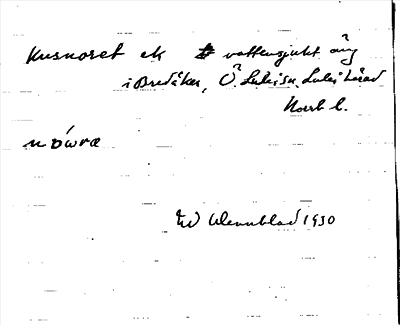 Kusnoret ek vattensjukt äng
i Bredåker, Ö. Luleå sn, Luleå härad
Norrb l.
n ɒ́wræ
W Wennblad 1930